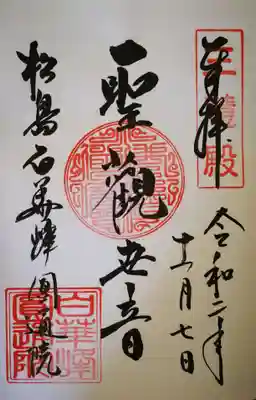 奉拝
令和二年
十一月七日
聖觀世音
松島白華峰圓通院
白華峰
圓通院